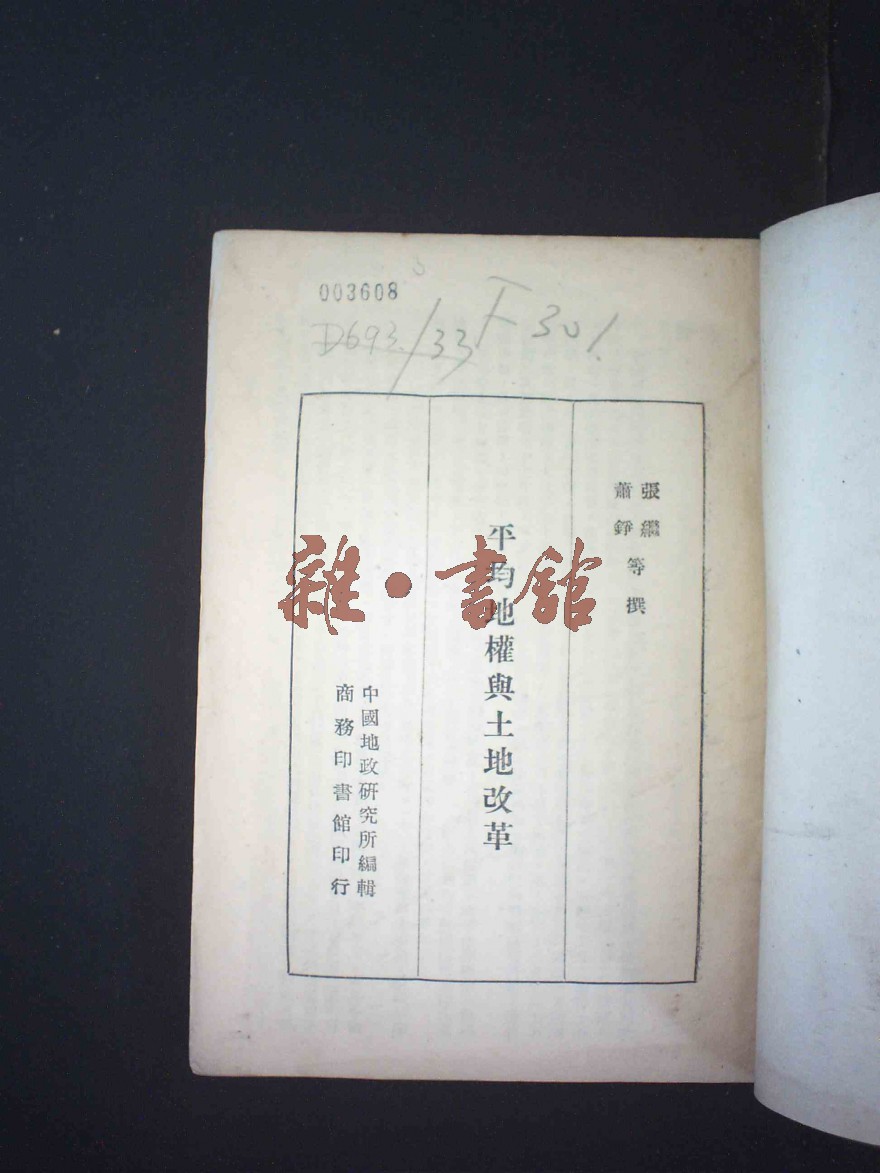 003608
D693./33
F301.
張繼
蕭錚
等撰
平均地權與土地改革
中國地政研究所編輯
商務印書館印行
雜·書館